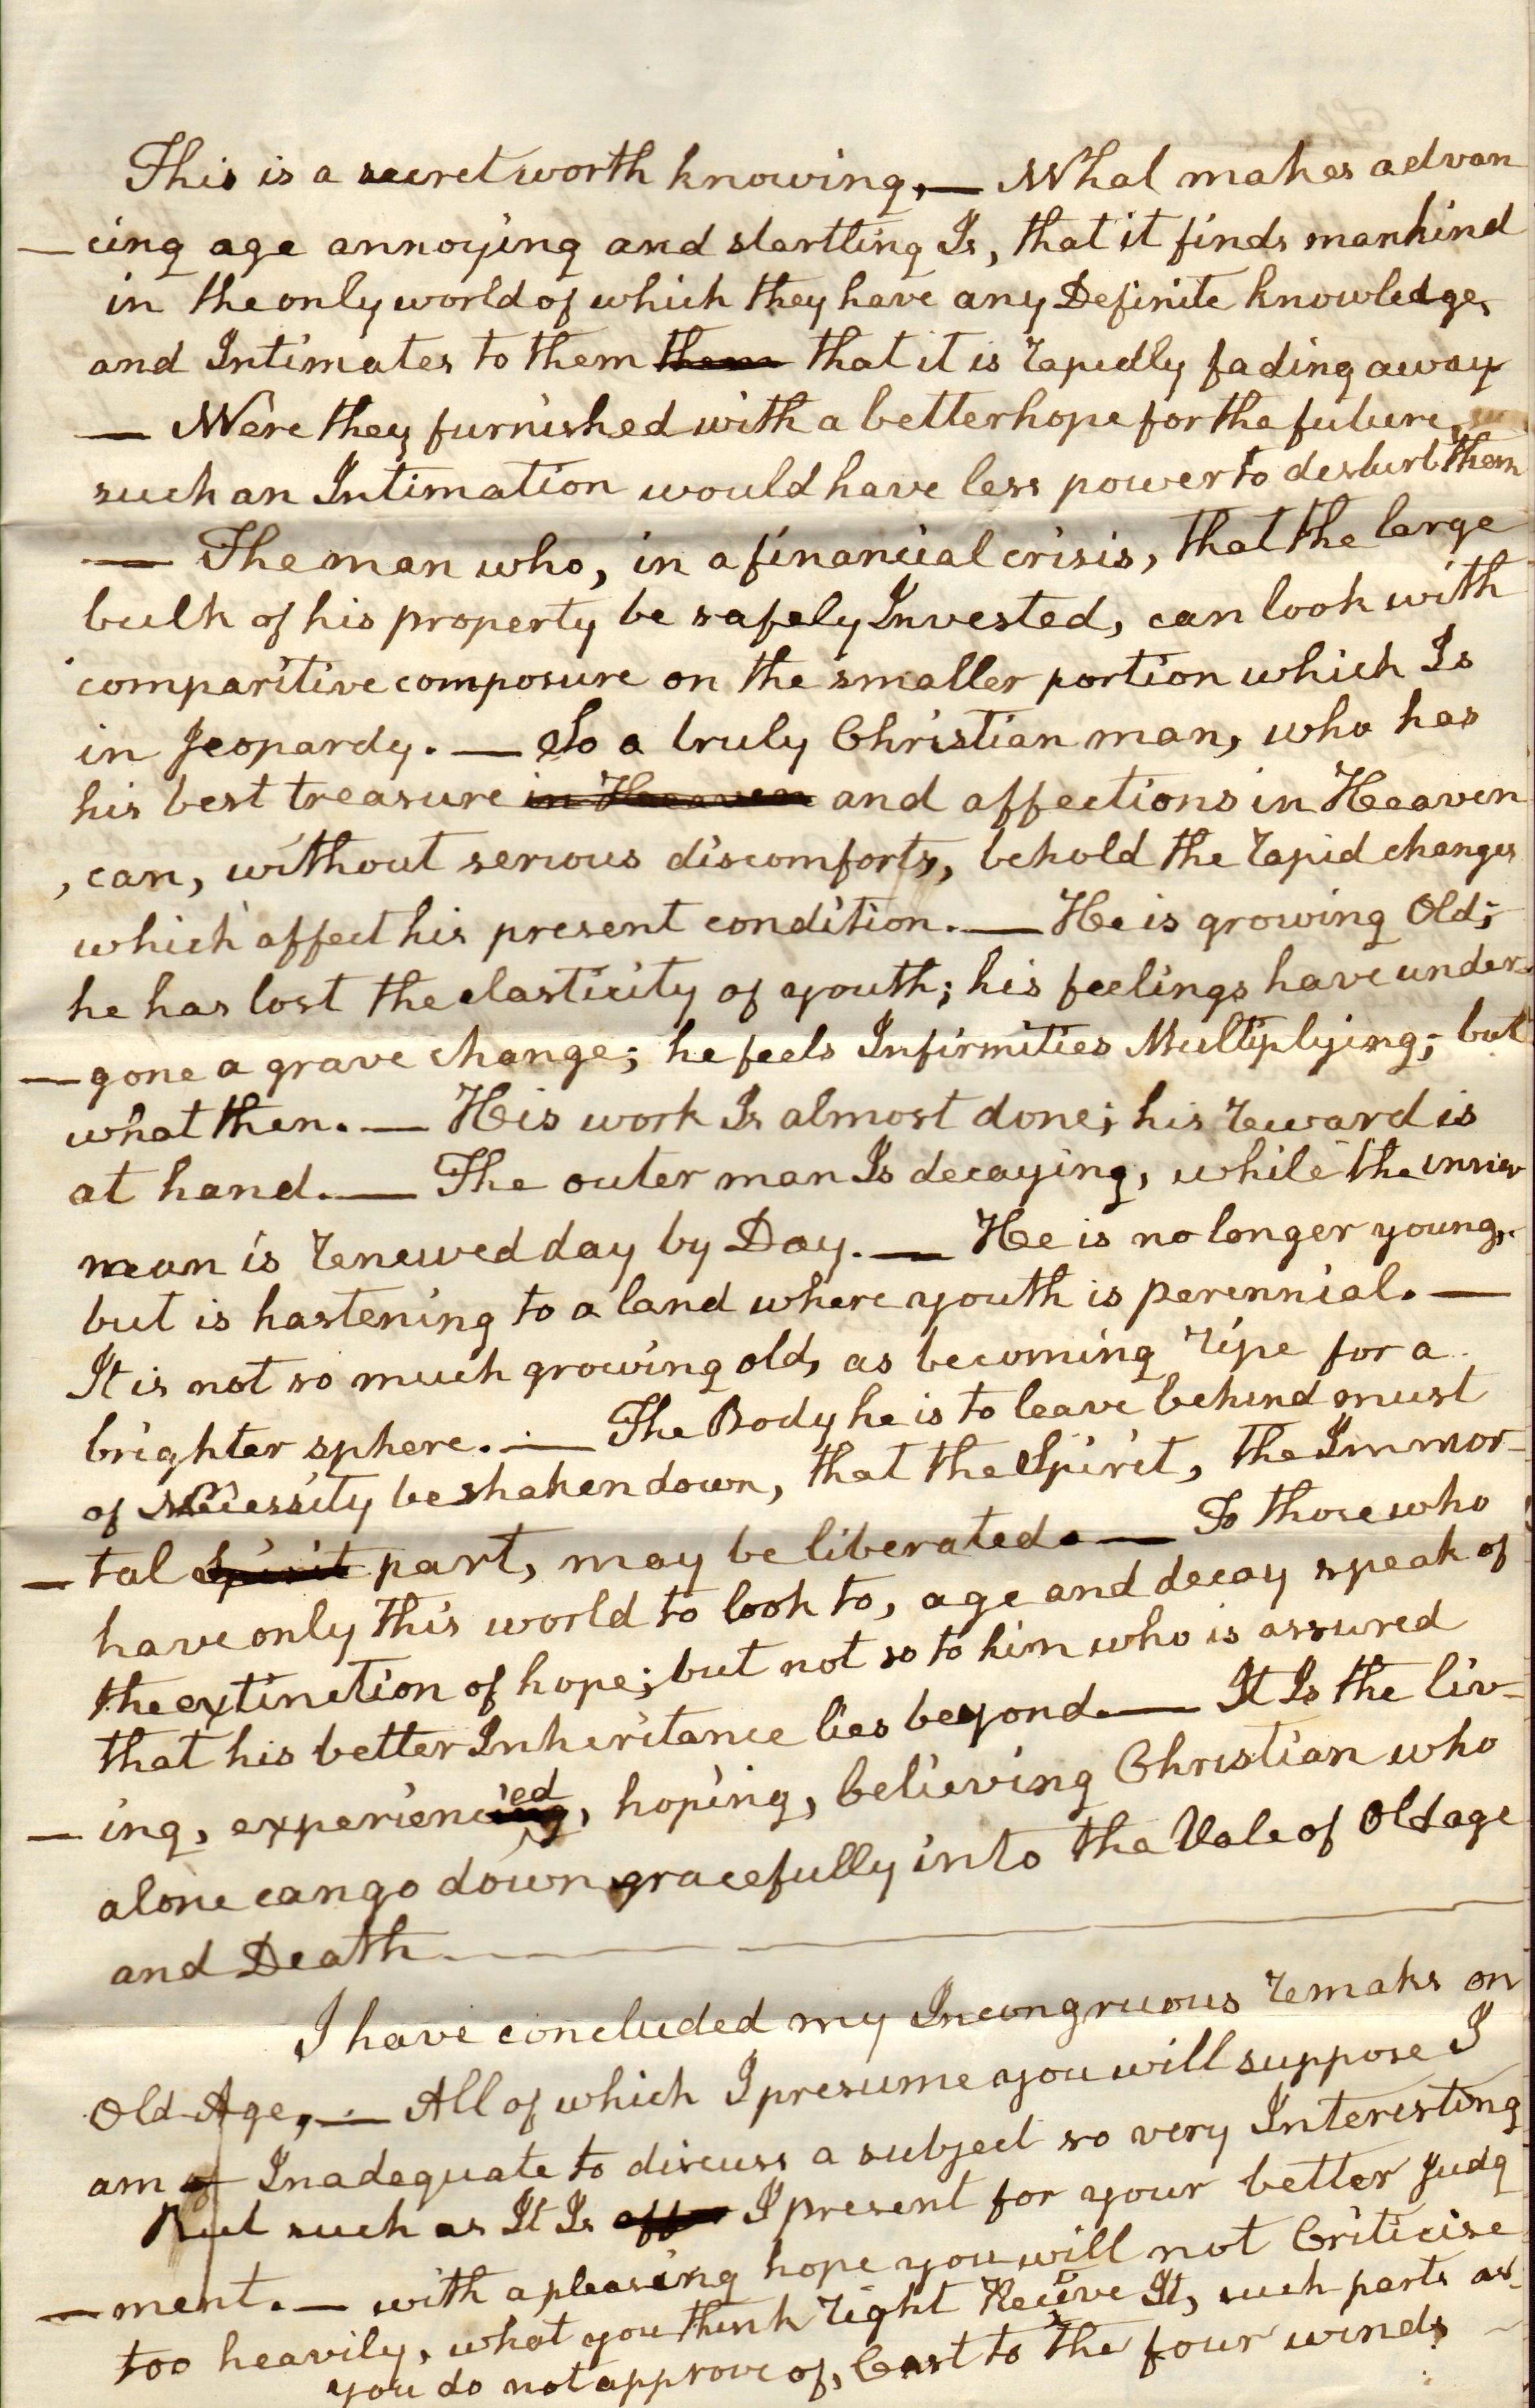 This is a secret worth knowing, — What makes advan
— cing age annoying and startling Is, that it finds mankind
in the only world of which they have any Definite knowledge,
and Intimates to them them that it is rapidly fading away
— Were they furnished with a better hope for the future,
such an Intimation would have less power to desturb them
— The man who, in a financial crisis, that the large
bulk of his property be safely Invested, can look with
comparitive composure on the smaller portion which Is
in Jeopardy. — So a truly Christian man, who has
his best treasure in Heaven and affections in Heaven
, can, without serious discomforts, behold the rapid changes
which affect his present condition. — He is growing Old;
he has lost the elasticity of youth; his feelings have under-
— gone a grave change; he feels Infirmities Multiplying; but
what then. — His work Is almost done; his reward is
at hand. — The outer man Is decaying, while the inner
man is renewed day by Day. — He is no longer young,
but is hastening to a land where youth is perennial. —
It is not so much growing old, as becoming ripe for a
brighter sphere. — The Body he is to leave behind must
of Necessity be shaken down, that the Spirit, the Immor-
— tal Spirit part, may be liberated. — To those who
have only this world to look to, age and decay speak of
the extinction of hope; but not so to him who is assured
that his better Inheritance lies beyond. — It Is the liv-
— ing, experienced, hoping, believing Christian who
alone can go down gracefully into the Vale of Old age
and Death —
I have concluded my Incongruous remaks on
Old Age, — All of which I presume you will suppose I
am of Inadequate to discuss a subject so very Interesting
But such as It Is offer I present for your better Judg
— ment. — with a pleasing hope you will not Criticise
too heavily, what you think right Recieve It, such parts as
you do not approve of, Cast to the four winds